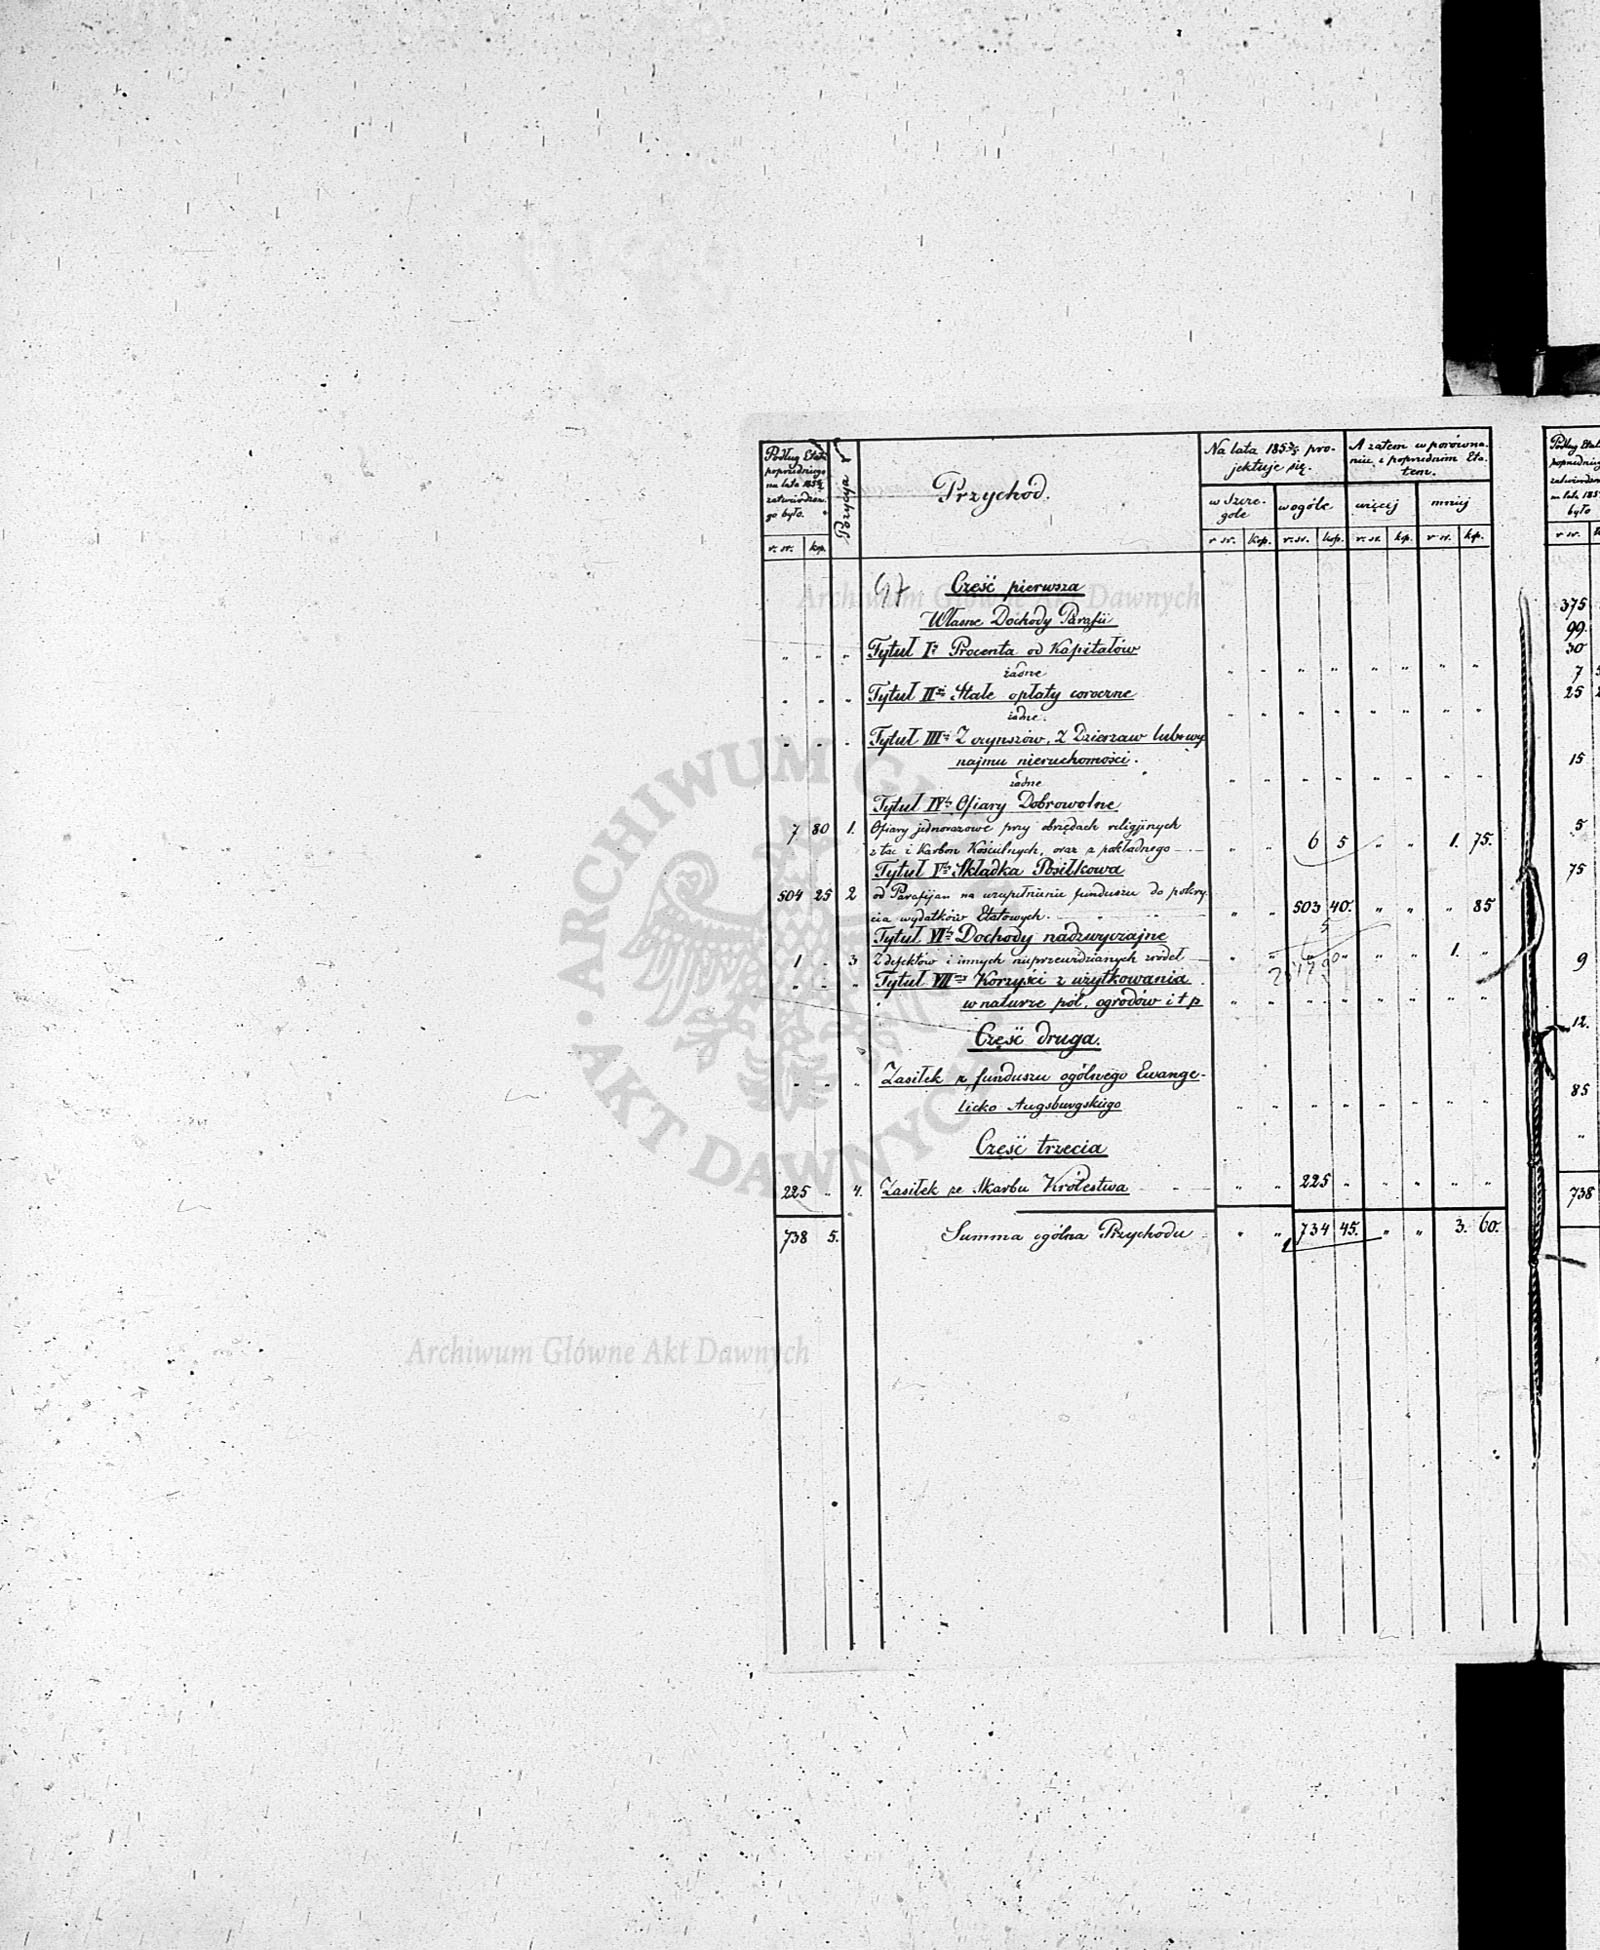 Podług Etatu
poprzedniego
na lata 185
zatwierdzon.
go było.
r. sr. kop.
Pozycya
Przychód.
Na lata 185 pro-
jektuje się.
w Szcze-
góle
wogóle
r sr. kop. r. sr. kop.
A zatem w porówna-
niu z poprzednim Eta-
tem.
więcej mniej
r. sr. kp. r sr. kp.
Część pierwsza
Własne Dochody Parafii
" " " Tytuł I Procenta od Kapitałów
żadne " " " " " " " "
" " " Tytuł II Stałe opłaty coroczne
żadne. " " " " " " " "
" " " Tytuł III Z czynszów, z Dzierżaw lub wy
najmu nieruchomości.
żadne " " " " " " " "
Tytuł IV Ofiary Dobrowolne
7 80 1. Ofiary jednorazowe przy obrzędach religijnych
z tac i Karbon Kościelnych, oraz z pokładnego " " 6 5 " " 1. 75.
Tytuł V Składka Posiłkowa
504 25 2 od Parafijan na uzupełnienie funduszu do pokry-
cia wydatków Etatowych. " " 503 40. " " " 85
Tytuł VI Dochody nadzwyczajne
1 " 3 Z defektów i innych nieprzewidzianych źródeł " " " " " " 1. "
" " " Tytuł VII Korzyści z użytkowania
w naturze pól, ogrodów i t p " " " " " " " "
Część druga.
" " " Zasiłek z funduszu ogólnego Ewange-
licko Augsburgskiego " " " " " " " "
Część trzecia
225 " 4. Zasiłek ze Skarbu Królestwa " " 225 " " " " "
738 5. Summa ogólna Przychodu " " 734 45. " " 3. 60.
Podług Etatu
poprzedniego
zatwierdzon
na lata 185
było
r sr.
375
99.
30
7
25
15
5
75
9
12.
85
"
738
Archiwum Główne Akt Dawnych
ARCHIWUM GŁÓWNE AKT DAWNYCH
Archiwum Główne Akt Dawnych